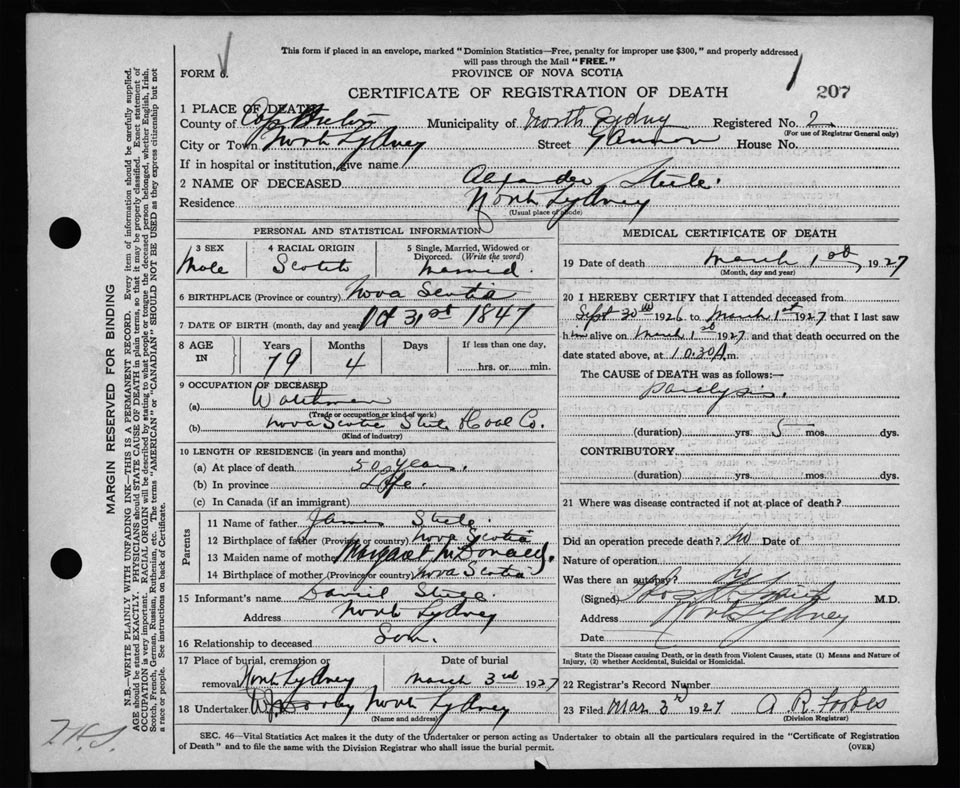 This form if placed in an envelope, marked "Dominion Statistics—Free, penalty for improper use $300," and properly addressed
will pass through the Mail "FREE."
FORM 6.
PROVINCE OF NOVA SCOTIA
CERTIFICATE OF REGISTRATION OF DEATH
207
1 PLACE OF DEATH
County of Cape Breton Municipality of North Sydney Registered No. 2
(For use of Registrar General only)
City or Town North Sydney Street House No.
If in hospital or institution, give name
2 NAME OF DECEASED Alexander Steele.
Residence North Sydney
(Usual place of abode)
PERSONAL AND STATISTICAL INFORMATION
3 SEX 4 RACIAL ORIGIN 5 Single, Married, Widowed or Divorced. (Write the word)
Male Scotch Married.
6 BIRTHPLACE (Province or country) Nova Scotia
7 DATE OF BIRTH (month, day and year) Oct 31st 1847
8 AGE IN Years Months Days If less than one day,
79 4 hrs. or min.
9 OCCUPATION OF DECEASED
(a) Watchman
(Trade or occupation or kind of work)
(b) Nova Scotia Steel & Coal Co.
(Kind of industry)
10 LENGTH OF RESIDENCE (in years and months)
(a) At place of death 50 years.
(b) In province Life.
(c) In Canada (if an immigrant)
Parents
11 Name of father James Steele.
12 Birthplace of father (Province or country) Nova Scotia
13 Maiden name of mother Margaret McDonald.
14 Birthplace of mother (Province or country) Nova Scotia
15 Informant's name David Steele
Address North Sydney
16 Relationship to deceased Son.
17 Place of burial, cremation or removal North Sydney Date of burial March 3rd 1927
18 Undertaker North Sydney
(Name and address)
MEDICAL CERTIFICATE OF DEATH
19 Date of death March 1st 1927
(Month, day and year)
20 I HEREBY CERTIFY that I attended deceased from
Sept 30th 1926 to March 1st 1927 that I last saw
him alive on March 1st 1927 and that death occurred on the
date stated above, at 10.30 A.m.
The CAUSE of DEATH was as follows:—
Paralysis.
(duration) yrs. 5 mos. dys.
CONTRIBUTORY
(duration) yrs. mos. dys.
21 Where was disease contracted if not at place of death?
Did an operation precede death? No Date of
Nature of operation
Was there an autopsy? No
(Signed) M.D.
Address North Sydney
Date
State the Disease causing Death, or in death from Violent Causes, state (1) Means and Nature of
Injury, (2) whether Accidental, Suicidal or Homicidal.
22 Registrar's Record Number
23 Filed Mar 3rd 1927 A R Forbes
(Division Registrar)
SEC. 46—Vital Statistics Act makes it the duty of the Undertaker or person acting as Undertaker to obtain all the particulars required in the "Certificate of Registration
of Death" and to file the same with the Division Registrar who shall issue the burial permit.
(OVER)
MARGIN RESERVED FOR BINDING
N.B.—WRITE PLAINLY WITH UNFADING INK—THIS IS A PERMANENT RECORD. Every item of information should be carefully supplied.
AGE should be stated EXACTLY. PHYSICIANS should STATE CAUSE OF DEATH in plain terms, so that it may be properly classified. Exact statement of
OCCUPATION is very important. RACIAL ORIGIN will be described by stating to what people or tongue the deceased person belonged, whether English, Irish,
Scotch, French, German, Russian, Ruthenian, etc. The terms "AMERICAN" or "CANADIAN" SHOULD NOT BE USED as they express citizenship but not
a race or people. See instructions on back of Certificate.